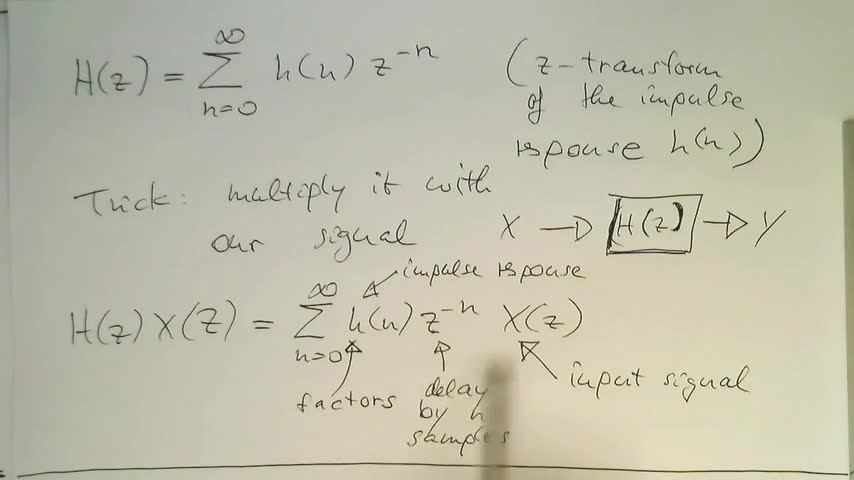 H(z) = ∞∑n=0 h(n) z^-n (z-transform
of the impulse
response h(n))
Trick: multiply it with
our signal
X → H(z) → Y
impulse response
H(z) X(z) = ∞∑n=0 h(n) z^-n X(z)
factors
delay
by n
samples
input signal